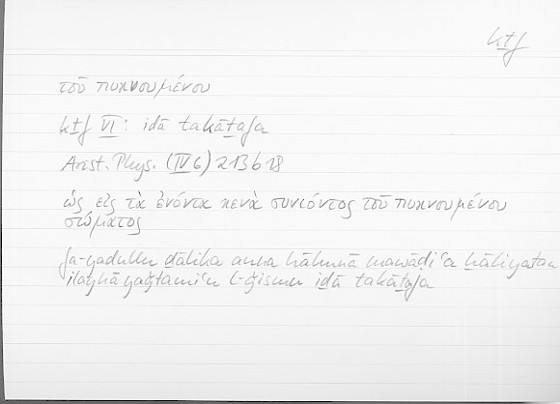 kṯf
τοῦ πυκνουμένου
kṯf VI: iḏā takāṯafa
Arist. Phys. (IV 6) 213b18
ὡς εἰς τὰ ἐνόντα κενὰ συνιόντος τοῦ πυκνουμένου
σώματος
fa-yadullu ḏālika anna hāhunā mawāḍiʿa ḫāliyatan
ilayhā yaǧtamiʿu l-ǧismu iḏā takāṯafa